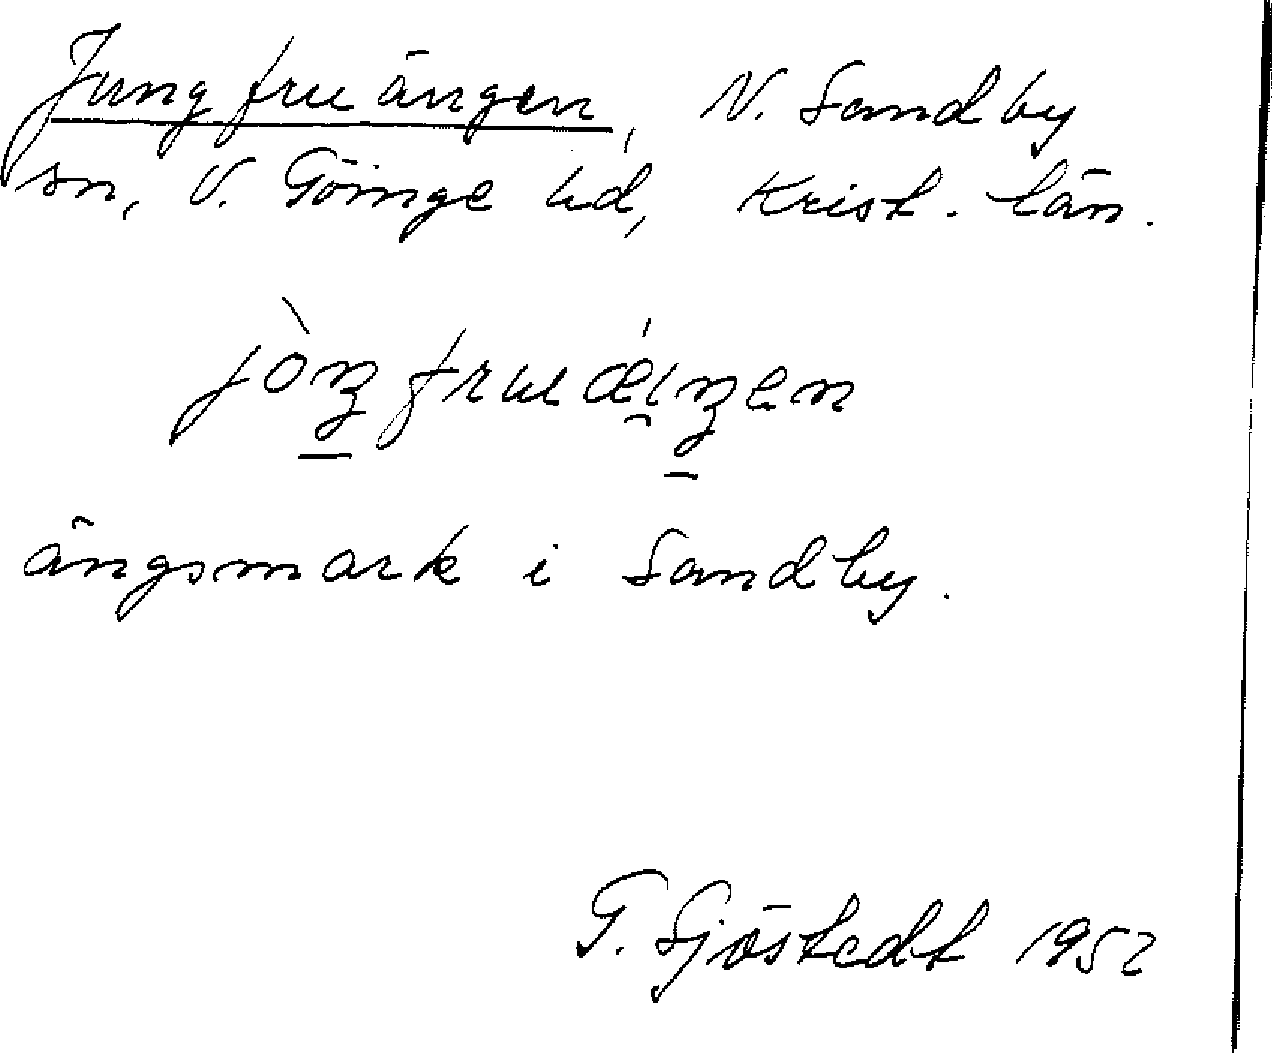 Jungfruängen, N. Sandby
sn, V. Göinge hd, Krist. län.
jòŋfruǽi̯ŋen
ängsmark i Sandby.
G. Sjöstedt 1952